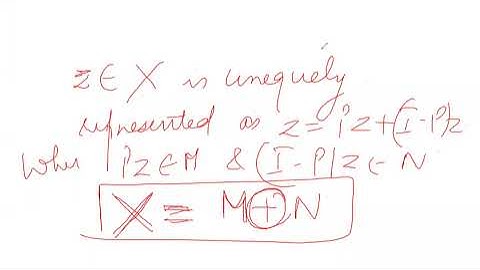 z ∈ X is unequely
represented as z = Pz + (I-P)z
Wher Pz ∈ M & (I-P)z ∈ N
X = M ⊕ N